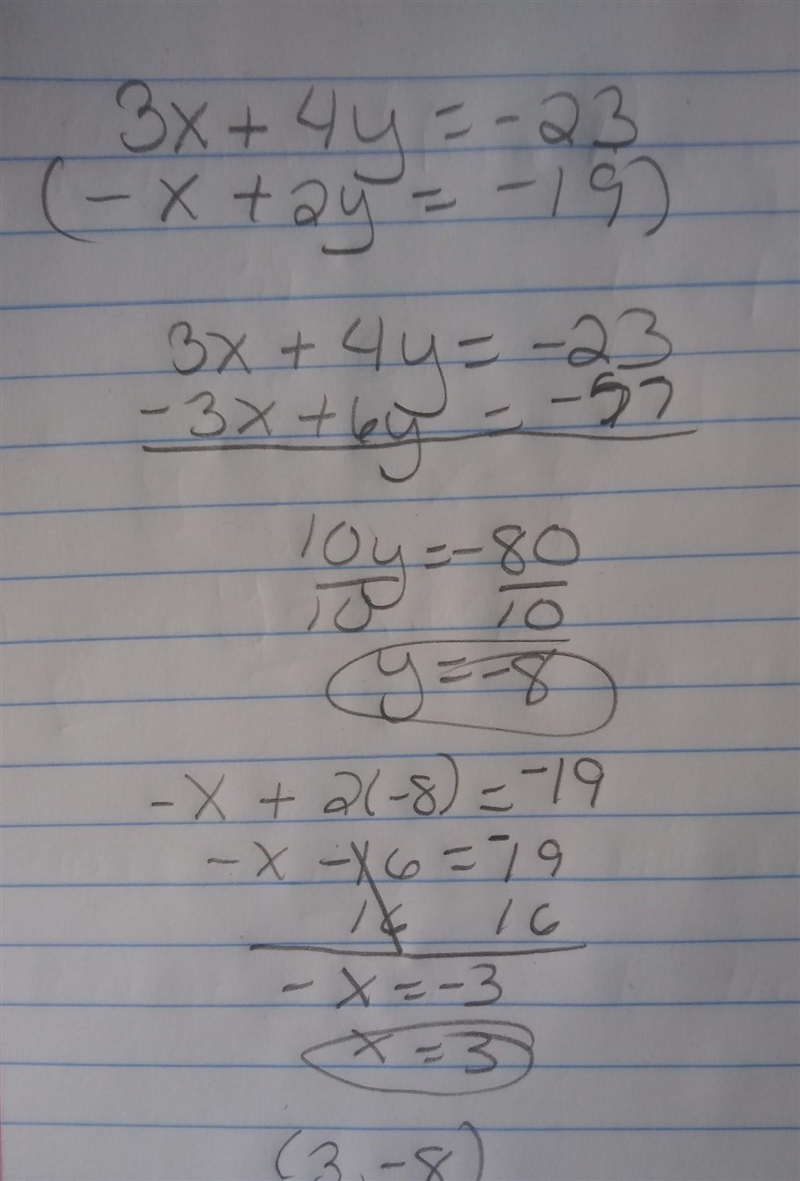 3x + 4y = -23
(-x + 2y = -19)
3x + 4y = -23
-3x + 6y = -57
10y = -80
10 10
y = -8
-x + 2(-8) = -19
-x -16 = -19
16 16
-x = -3
x = 3
(3, -8)